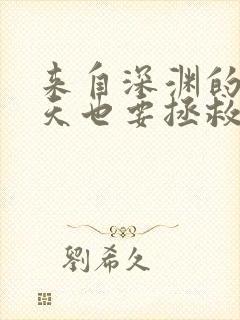 来自深渊的
天也要拯救
劉希久